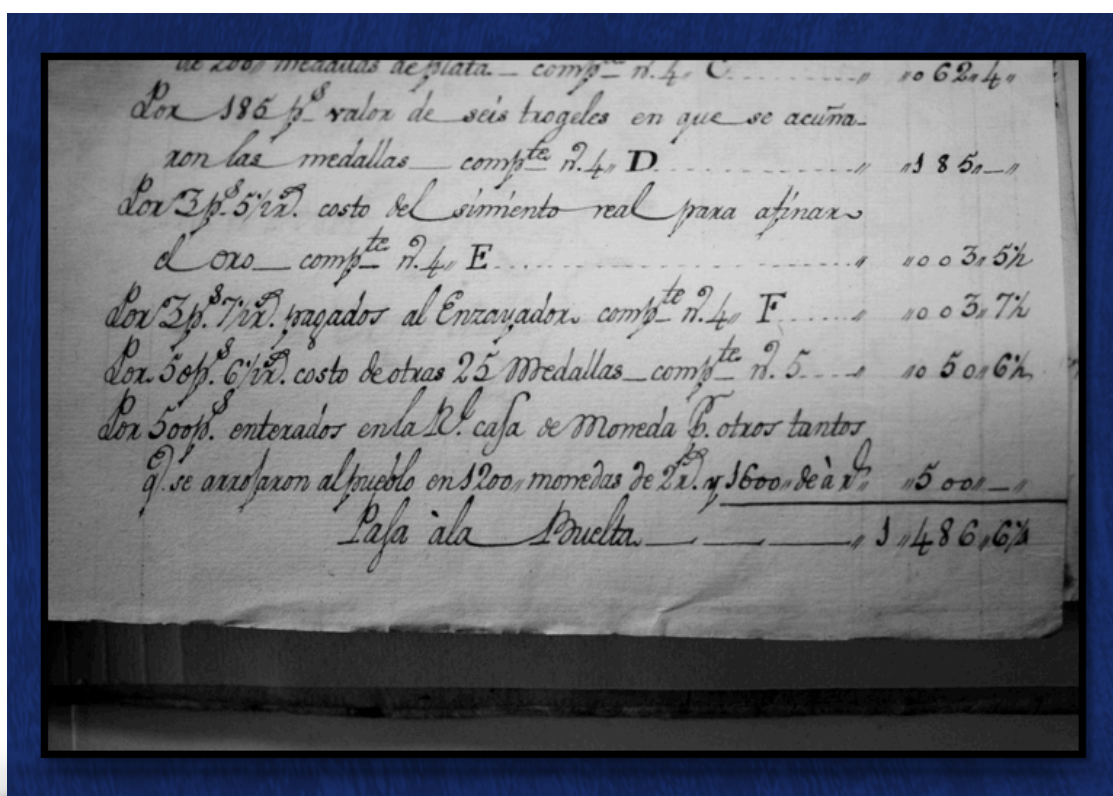 de 200,, medallas de plata _ comp.te n. 4,, C ........ ,, ,,062,,4,,
Por 185 p.s valor de seis trogeles en que se acuña-
ron las medallas _ comp.te n. 4,, D ........ ,, ,,185,,_,,
Por 3 p.s 5 1/2 r.s costo del simiento real para afinar
el oro _ comp.te n. 4,, E ........ ,, ,,003,,5 1/2
Por 3 p.s 7 1/2 r.s pagados al Enzayador comp.te n. 4,, F ...... ,, ,,003,,7 1/2
Por 50 p.s 6 1/2 r.s costo de otras 25 Medallas _ comp.te n. 5 .... ,, ,,050,,6 1/2
Por 500 p.s enterados en la R.l casa de Moneda P.r otros tantos
q.e se arrojaron al pueblo en 1200,, monedas de 2 r.s y 1600,, de à r.l ,, ,,500,,_,,
Pasa à la Buelta _ _ _ ,, 1,,486,,6 1/2